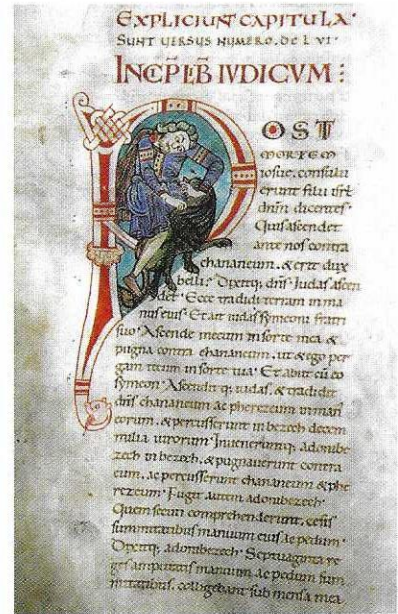 EXPLICIUNT CAPITULA·
SUNT UERSUS NUMERO. DC L VI·
INCĒP LĪB IVDICVM :
POST
MORTEM
iosue, consulu
erunt filii isrł
dnm̄ dicentes·
Quis ascendet
ante nos contra
chananeum. & erit dux
belli? Dixitq; dn̄s· Iudas ascen
det· Ecce tradidi terram in ma
nus eius· Et ait iudas symeoni fratri
suo· Ascende mecum in sorte mea &
pugna contra chananeum. ut & ego per
gam tecum in sorte tua· Et abiit cū eo
symeon· Ascenditq; iudas. & tradidit
dn̄s chananeum ac pherezeum in man
eorum. & percusserunt in bezech decem
milia uirorum· Inueneruntq; adonibe
zech in bezech. & pugnauerunt contra
eum. ac percusserunt chananeum & phe
rezeum· Fugit autem adonibezech·
Quem secuti comprehenderunt. cesis
summitatibus manuum eius ac pedum·
Dixitq; adonibezech· Septuaginta re
ges amputatis manuum ac pedum sum
mitatibus. colligebant sub mensa mea